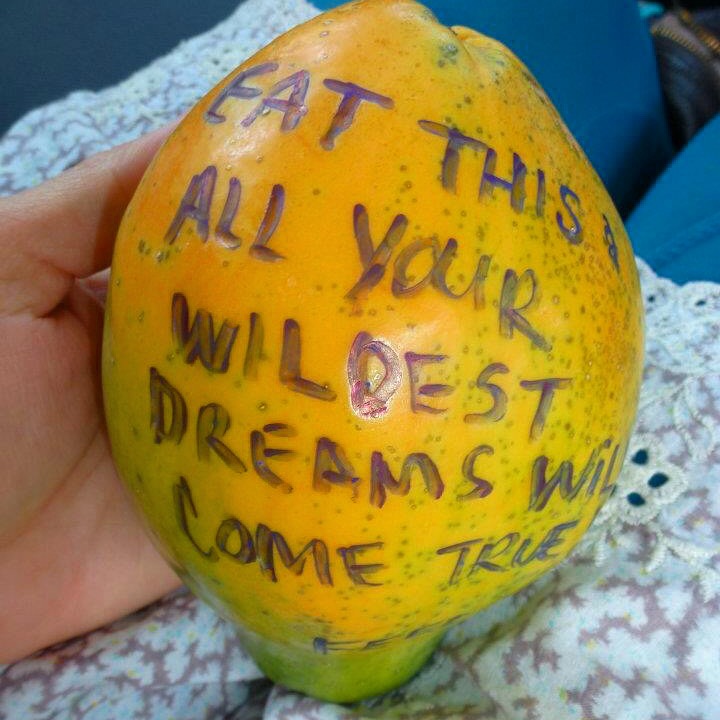 EAT THIS &
ALL YOUR
WILDEST
DREAMS WIL
COME TRUE